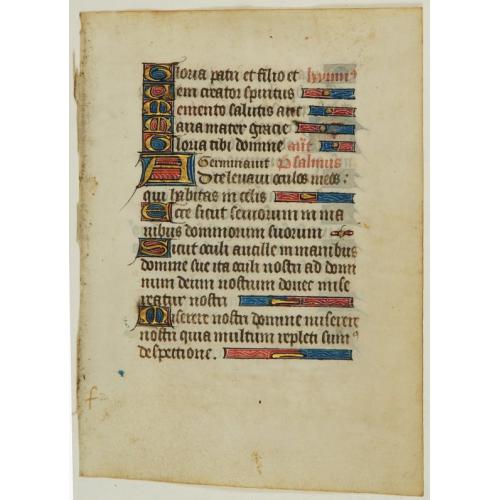 Gloria patri et filio et hymn⁹
Veni creator spiritus
Memento salutis auct
Maria mater gracie
Gloria tibi domine añt
Germinavit Psalmus
Ad te levavi oculos meos:
qui habitas in celis
Ecce sicut servorum in ma
nibus dominorum suorum
Sicut oculi ancille in manibus
domine sue ita oculi nostri ad domi
num deum nostrum donec mise
reatur nostri
Miserere nostri domine miserere
nostri quia multum repleti sum⁹
despectione.
f